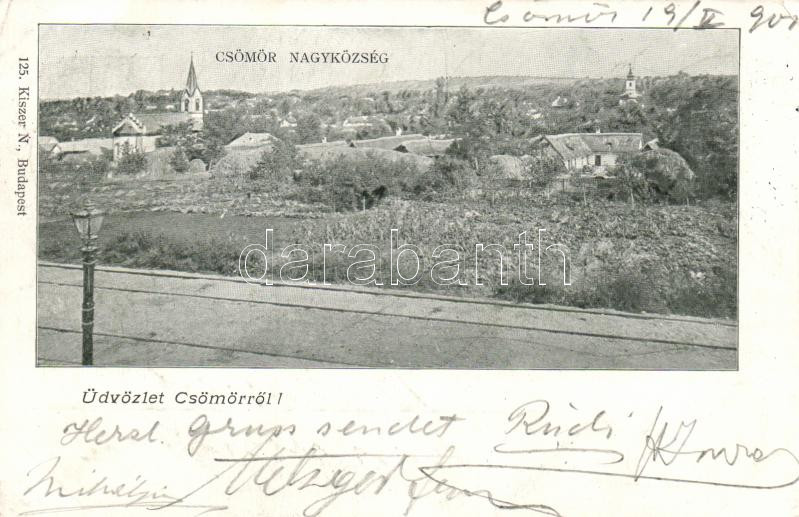 Csömör 19/V 900
CSÖMÖR NAGYKÖZSÉG
125. Kiszer N., Budapest
darabanth
Üdvözlet Csömörről!
Herzl. Gruss sendet Rudi